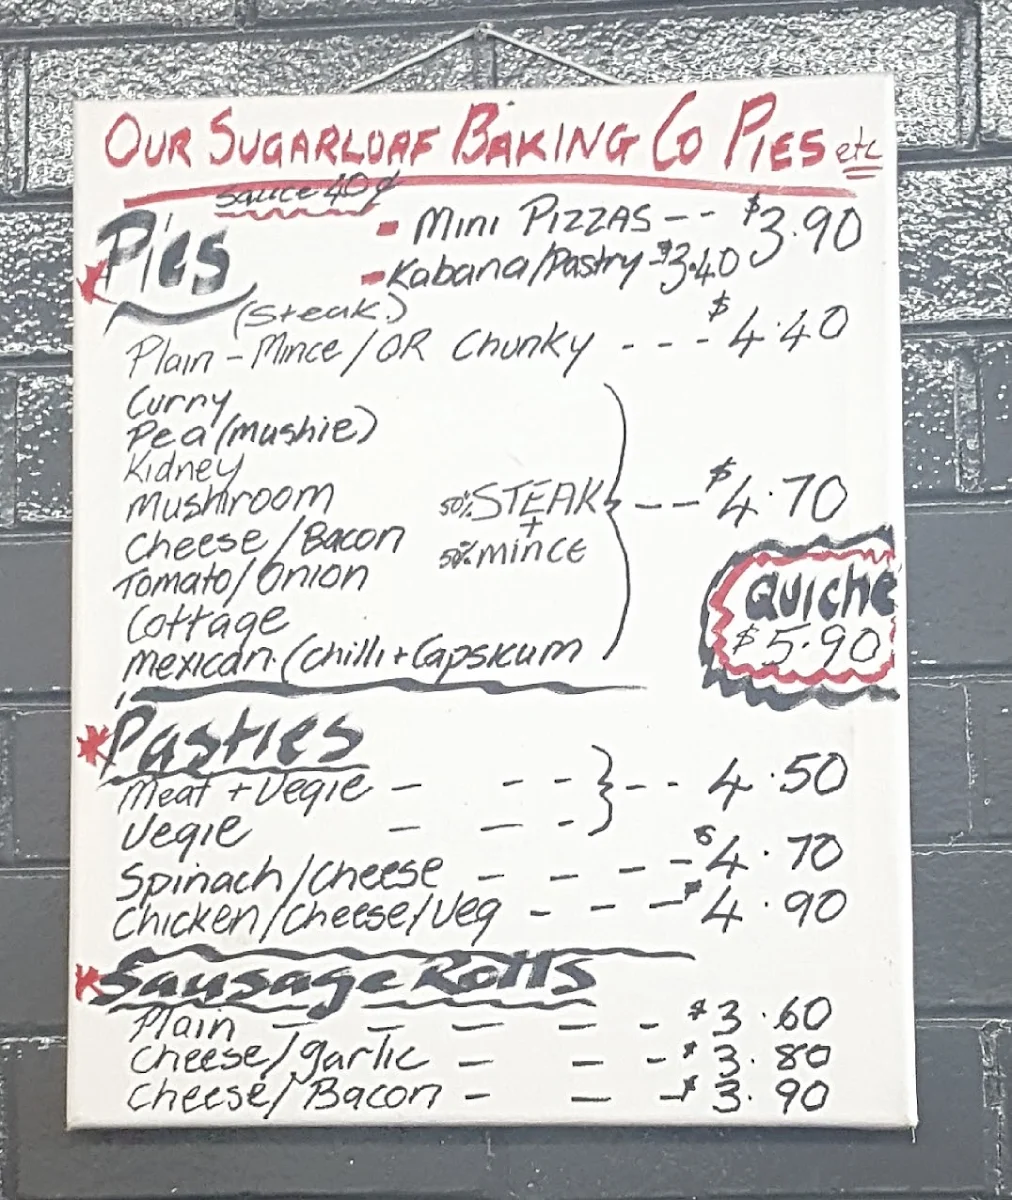 OUR SUGARLOAF BAKING CO PIES etc
Sauce 40¢
Pies
- Mini PIZZAS -- $3.90
- Kabana/Pastry - $3.40
(Steak)
Plain - Mince / OR Chunky --- $4.40
Curry
Pea (mushie)
Kidney
Mushroom
Cheese/Bacon
Tomato/Onion
Cottage
Mexican. (Chilli + Capsicum
50% STEAK
+
50% mince
-- $4.70
QUICHE
$5.90
* Pasties
Meat + Vegie - - - } -- 4.50
Vegie - - -
Spinach/Cheese - - - - $4.70
Chicken/Cheese/Veg - - - $4.90
* Sausage Rolls
Plain - - - - - $3.60
Cheese/garlic - - - $3.80
Cheese/Bacon - - - $3.90